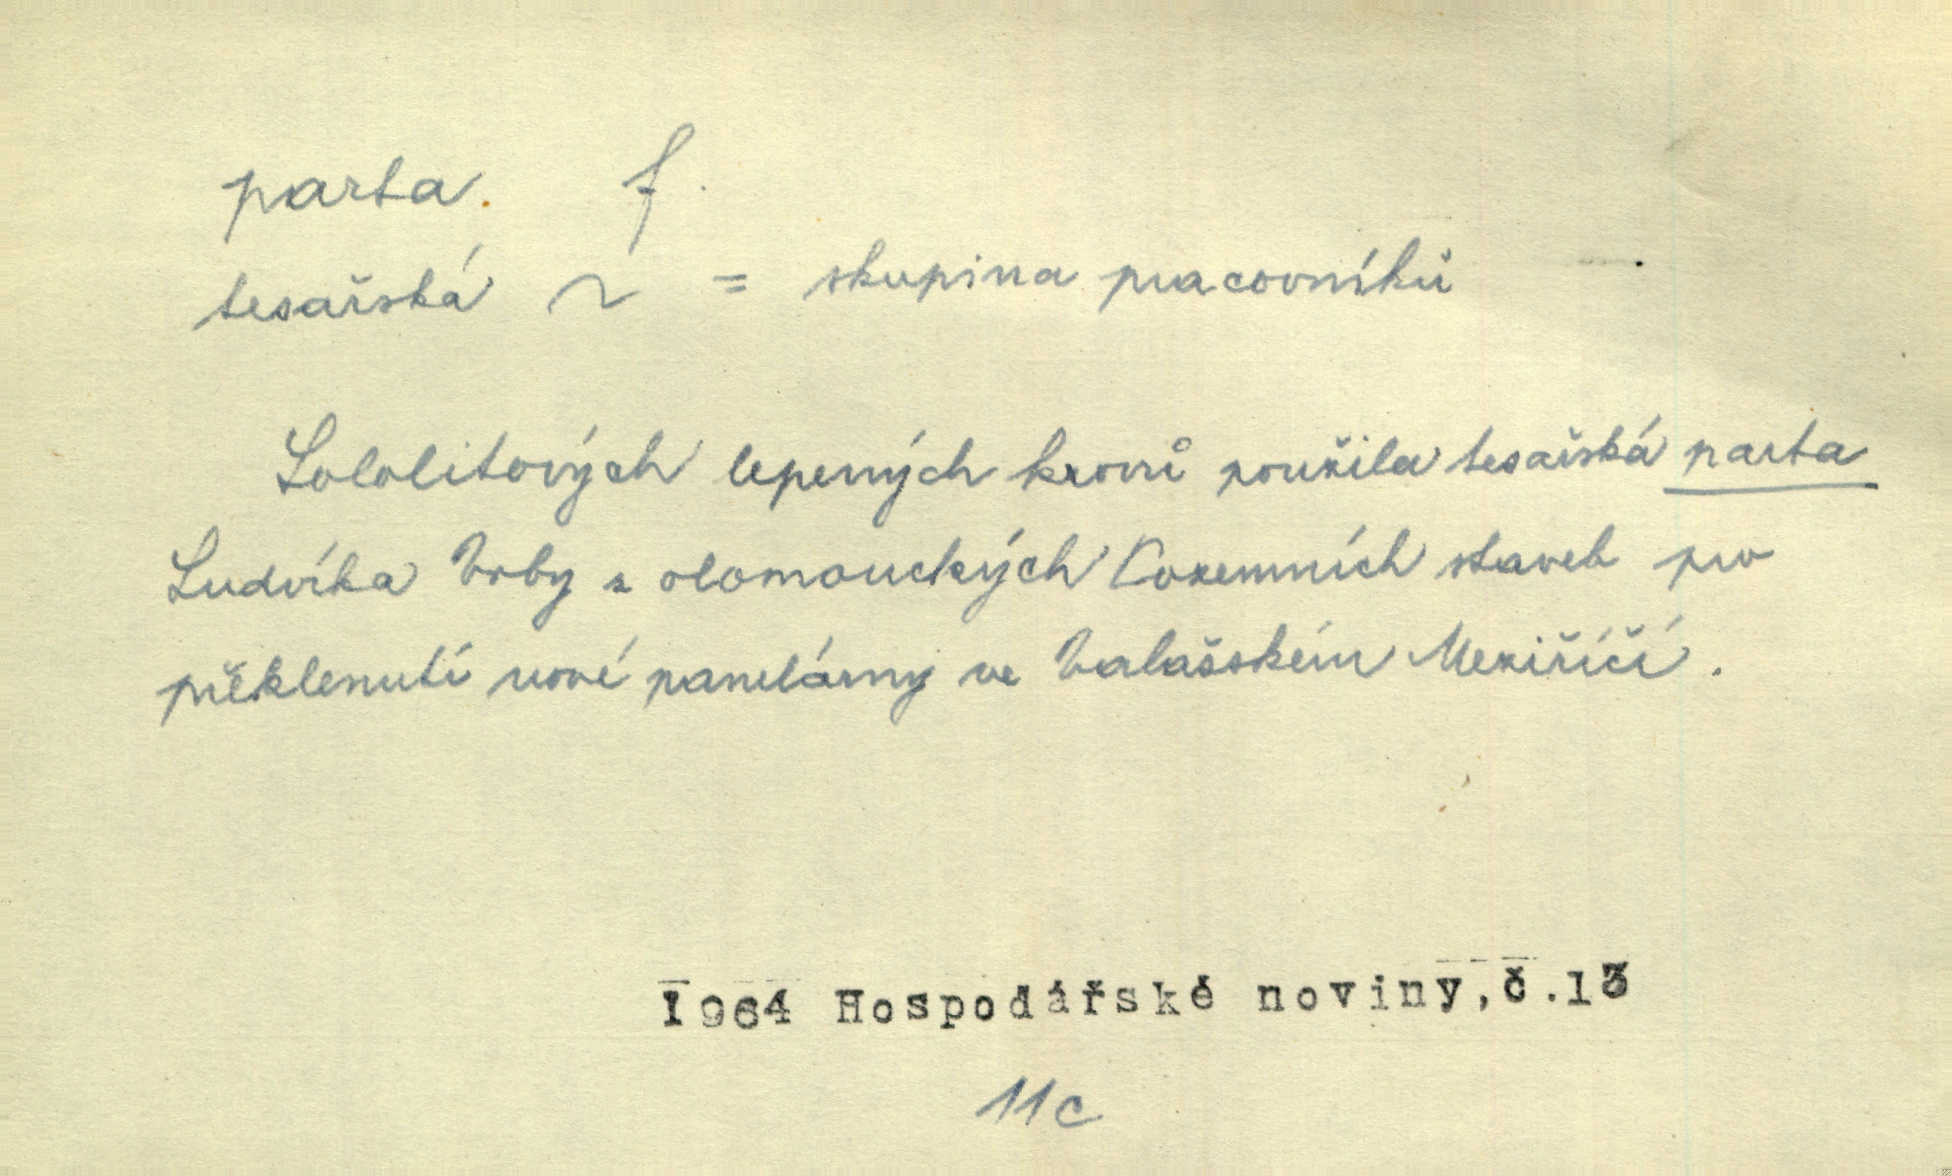 parta. f.
tesařská ~ = skupina pracovníků
Sololitových lepených krovů použila tesařská parta
Ludvíka Vrby z olomouckých Pozemních staveb pro
překlenutí nové panelárny ve Valašském Meziříčí.
1964 Hospodářské noviny, č.13
11c